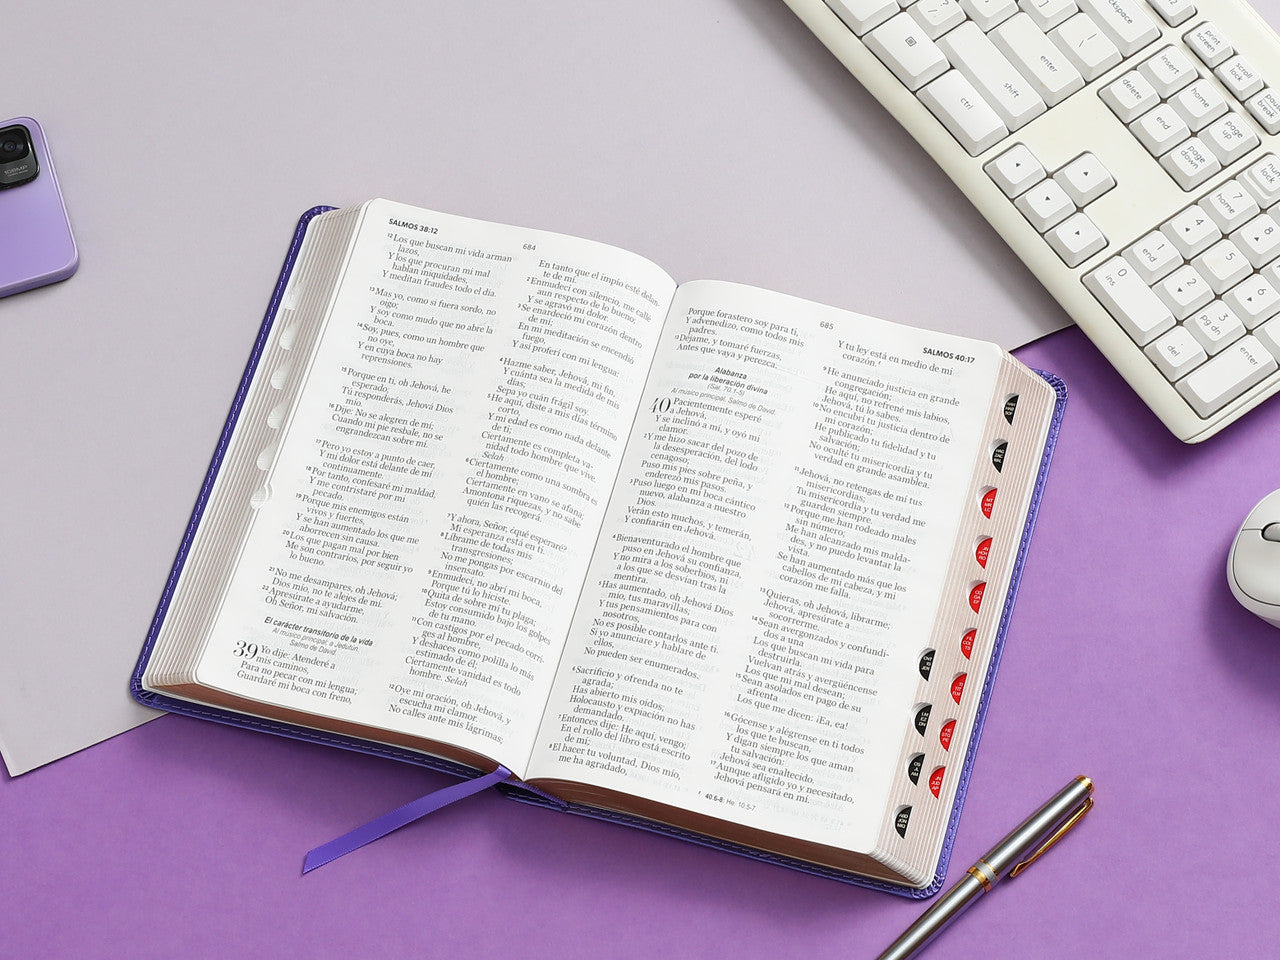 SALMOS 38:12
684
12 Los que buscan mi vida arman
lazos,
Y los que procuran mi mal
hablan iniquidades,
Y meditan fraudes todo el día.
13 Mas yo, como si fuera sordo, no
oigo;
Y soy como mudo que no abre la
boca.
14 Soy, pues, como un hombre que
no oye,
Y en cuya boca no hay
reprensiones.
15 Porque en ti, oh Jehová, he
esperado;
Tú responderás, Jehová Dios
mío.
16 Dije: No se alegren de mí;
Cuando mi pie resbale, no se
engrandezcan sobre mí.
17 Pero yo estoy a punto de caer,
Y mi dolor está delante de mí
continuamente.
18 Por tanto, confesaré mi maldad,
Y me contristaré por mi
pecado.
19 Porque mis enemigos están
vivos y fuertes,
Y se han aumentado los que me
aborrecen sin causa.
20 Los que pagan mal por bien
Me son contrarios, por seguir yo
lo bueno.
21 No me desampares, oh Jehová;
Dios mío, no te alejes de mí.
22 Apresúrate a ayudarme,
Oh Señor, mi salvación.
El carácter transitorio de la vida
Al músico principal; a Jedutún.
Salmo de David.
39 Yo dije: Atenderé a
mis caminos,
Para no pecar con mi lengua;
Guardaré mi boca con freno,
En tanto que el impío esté delan-
te de mí.
2 Enmudecí con silencio, me callé
aun respecto de lo bueno;
Y se agravó mi dolor.
3 Se enardeció mi corazón dentro
de mí;
En mi meditación se encendió
fuego,
Y así proferí con mi lengua:
4 Hazme saber, Jehová, mi fin,
Y cuánta sea la medida de mis
días;
Sepa yo cuán frágil soy.
5 He aquí, diste a mis días término
corto,
Y mi edad es como nada delante
de ti;
Ciertamente es completa va-
nidad todo hombre que vive.
Selah
6 Ciertamente como una sombra es
el hombre;
Ciertamente en vano se afana;
Amontona riquezas, y no sabe
quién las recogerá.
7 Y ahora, Señor, ¿qué esperaré?
Mi esperanza está en ti.
8 Líbrame de todas mis
transgresiones;
No me pongas por escarnio del
insensato.
9 Enmudecí, no abrí mi boca,
Porque tú lo hiciste.
10 Quita de sobre mí tu plaga;
Estoy consumido bajo los golpes
de tu mano.
11 Con castigos por el pecado corri-
ges al hombre,
Y deshaces como polilla lo más
estimado de él;
Ciertamente vanidad es todo
hombre. Selah
12 Oye mi oración, oh Jehová, y
escucha mi clamor.
No calles ante mis lágrimas;
685
SALMOS 40:17
Porque forastero soy para ti,
Y advenedizo, como todos mis
padres.
13 Déjame, y tomaré fuerzas,
Antes que vaya y perezca.
Alabanza
por la liberación divina
(Sal. 70.1-5)
Al músico principal. Salmo de David.
40 Pacientemente esperé
a Jehová,
Y se inclinó a mí, y oyó mi
clamor.
2 Y me hizo sacar del pozo de
la desesperación, del lodo
cenagoso;
Puso mis pies sobre peña, y
enderezó mis pasos.
3 Puso luego en mi boca cántico
nuevo, alabanza a nuestro
Dios.
Verán esto muchos, y temerán,
Y confiarán en Jehová.
4 Bienaventurado el hombre que
puso en Jehová su confianza,
Y no mira a los soberbios, ni
a los que se desvían tras la
mentira.
5 Has aumentado, oh Jehová Dios
mío, tus maravillas;
Y tus pensamientos para con
nosotros,
No es posible contarlos ante ti.
Si yo anunciare y hablare de
ellos,
No pueden ser enumerados.
6 Sacrificio y ofrenda no te
agrada;
Has abierto mis oídos;
Holocausto y expiación no has
demandado.
7 Entonces dije: He aquí, vengo;
En el rollo del libro está escrito
de mí;
8 El hacer tu voluntad, Dios mío,
me ha agradado,
Y tu ley está en medio de mi
corazón.
9 He anunciado justicia en grande
congregación;
He aquí, no refrené mis labios,
Jehová, tú lo sabes.
10 No encubrí tu justicia dentro de
mi corazón;
He publicado tu fidelidad y tu
salvación;
No oculté tu misericordia y tu
verdad en grande asamblea.
11 Jehová, no retengas de mí tus
misericordias;
Tu misericordia y tu verdad me
guarden siempre.
12 Porque me han rodeado males
sin número;
Me han alcanzado mis malda-
des, y no puedo levantar la
vista.
Se han aumentado más que los
cabellos de mi cabeza, y mi
corazón me falla.
13 Quieras, oh Jehová, librarme;
Jehová, apresúrate a
socorrerme.
14 Sean avergonzados y confundi-
dos a una
Los que buscan mi vida para
destruirla.
Vuelvan atrás y avergüéncense
Los que mi mal desean;
15 Sean asolados en pago de su
afrenta
Los que me dicen: ¡Ea, ea!
16 Gócense y alégrense en ti todos
los que te buscan,
Y digan siempre los que aman
tu salvación:
Jehová sea enaltecido.
17 Aunque afligido yo y necesitado,
Jehová pensará en mí.
40.6-8: He. 10.5-7
108MP
backspace
enter
shift
ctrl
print screen
scroll lock
pause break
insert
home
page up
delete
end
page down
num lock
7 home
8
4
5
6
1 end
2
3 pg dn
0 ins
del
enter